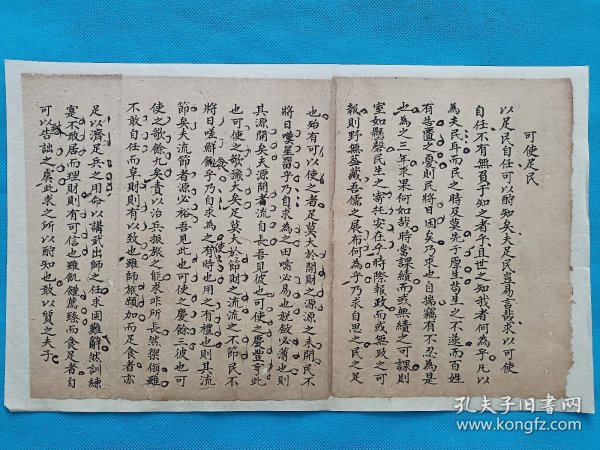 可使足民
以足民自任可以酧知矣夫足民豈易言哉求以可使
自任不有無負乎知之者乎且世之知我者何為乎凡以
為夫民耳而民之時及莫先于厚生苟生之不遂而百姓
有告匱之憂則民將日困矣乎求也自揣竊有不忍為是
也為之三年求果何如哉時當課績而或無績之可課則
室如懸罄民生之寄托安在乎時際報政而或無政之可
報則野無蓋藏吾儒之展布何為乎乃求自思之民之足
也殆有可以使之者足莫大於開財之源源之未開民不
將日嘆星罶乎乃自求為之田疇必易也稅斂必薄也則
其源開矣夫源開者流自長吾見彼也可使之慶豐亨此
也可使之歌豫大矣足莫大於節財之流流之不節民不
將日嗟鮮飽乎乃自求為之食時也用之有禮也則其流
節矣夫流節者源必裕吾見此也可使之慶餘三彼也可
使之歌餘九矣責以治兵振旅之能求非所長然禦侮雖
不敢自任而阜財則有以致也雖師旅頻加而足食者亦
足以濟足兵之用命以講武出師之任求固難辭然訓練
寔不敢居而理財則有可信也雖飢饉薦臻而食足者自
可以告詘之虞此求之所以酧知也敢以質之夫子
孔夫子旧书网
www.kongfz.com